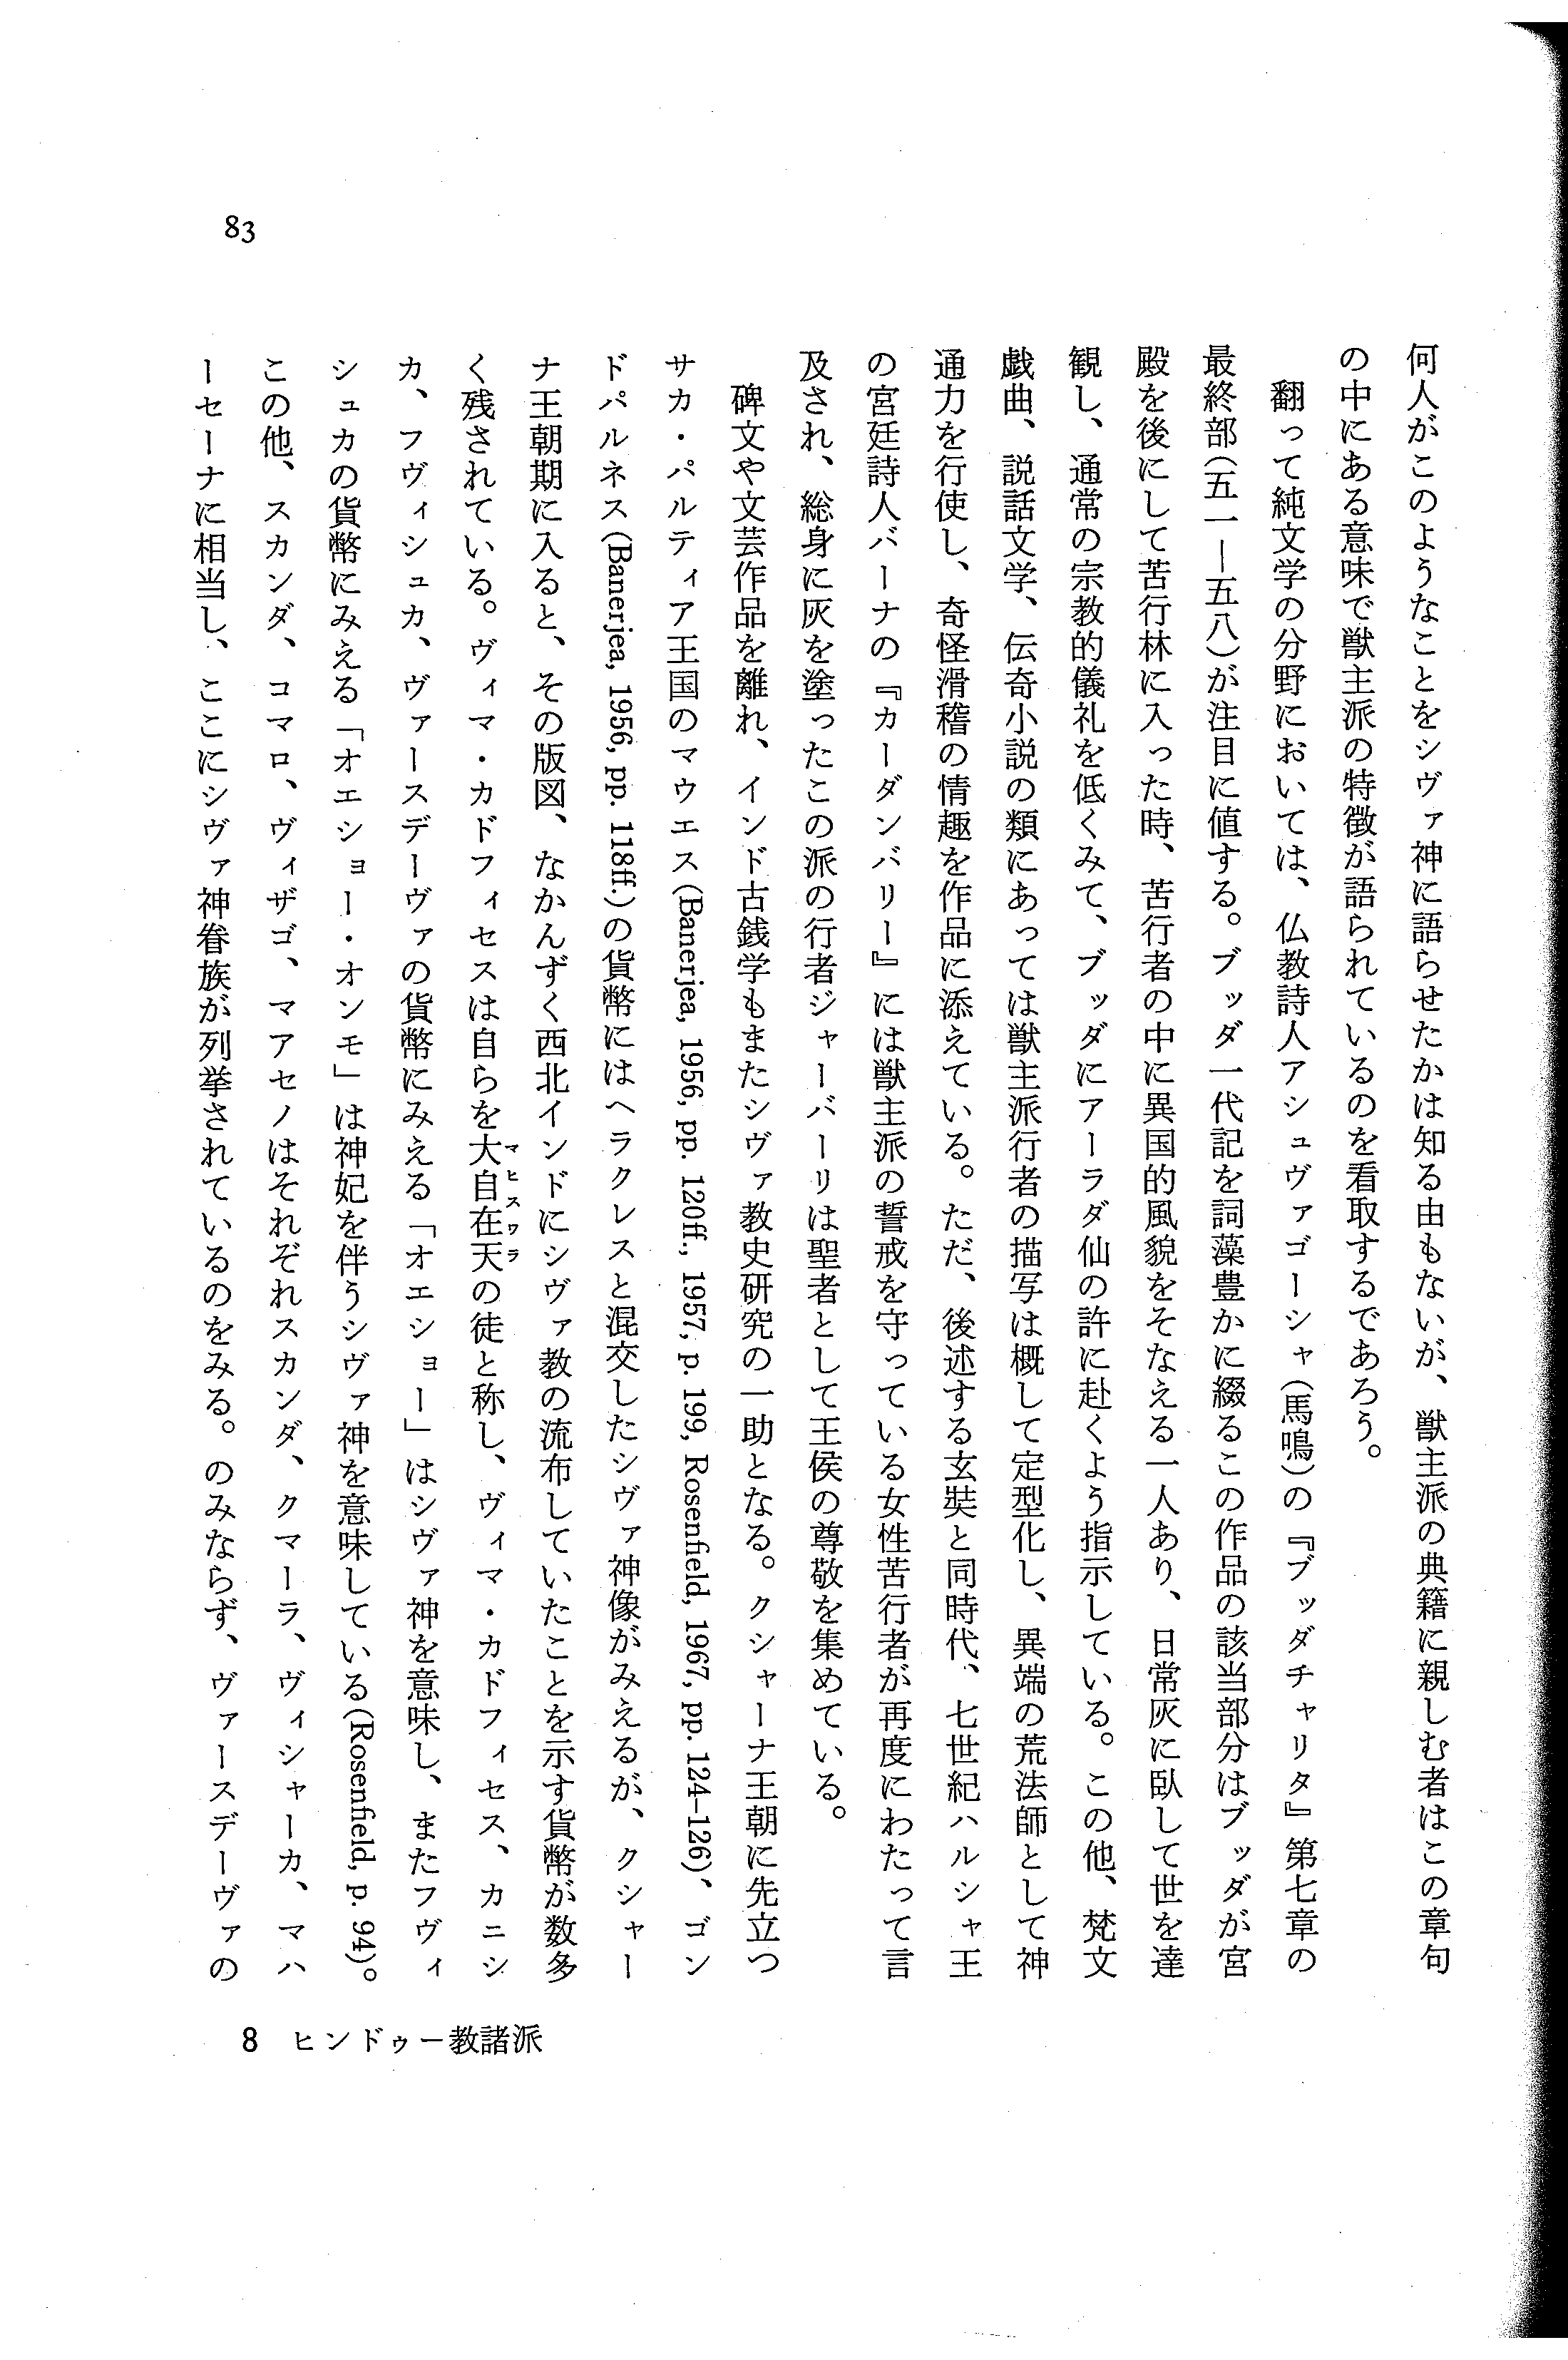 何人がこのようなことをシヴァ神に語らせたかは知る由もないが、獣主派の典籍に親しむ者はこの章句
の中にある意味で獣主派の特徴が語られているのを看取するであろう。
翻って純文学の分野においては、仏教詩人アシュヴァゴーシャ(馬鳴)の『ブッダチャリタ』第七章の
最終部(五一―五八)が注目に値する。ブッダ一代記を詞藻豊かに綴るこの作品の該当部分はブッダが宮
殿を後にして苦行林に入った時、苦行者の中に異国的風貌をそなえる一人あり、日常灰に臥して世を達
観し、通常の宗教的儀礼を低くみて、ブッダにアーラダ仙の許に赴くよう指示している。この他、梵文
戯曲、説話文学、伝奇小説の類にあっては獣主派行者の描写は概して定型化し、異端の荒法師として神
通力を行使し、奇怪滑稽の情趣を作品に添えている。ただ、後述する玄奘と同時代、七世紀ハルシャ王
の宮廷詩人バーナの『カーダンバリー』には獣主派の誓戒を守っている女性苦行者が再度にわたって言
及され、総身に灰を塗ったこの派の行者ジャーバーリは聖者として王侯の尊敬を集めている。
碑文や文芸作品を離れ、インド古銭学もまたシヴァ教史研究の一助となる。クシャーナ王朝に先立つ
サカ・パルティア王国のマウエス(Banerjea, 1956, pp. 120ff., 1957, p. 199, Rosenfield, 1967, pp. 124–126)、ゴン
ドパルネス(Banerjea, 1956, pp. 118ff.)の貨幣にはヘラクレスと混交したシヴァ神像がみえるが、クシャー
ナ王朝期に入ると、その版図、なかんずく西北インドにシヴァ教の流布していたことを示す貨幣が数多
く残されている。ヴィマ・カドフィセスは自らを大自在天マヒスワラの徒と称し、ヴィマ・カドフィセス、カニシ
カ、フヴィシュカ、ヴァースデーヴァの貨幣にみえる「オエショー」はシヴァ神を意味し、またフヴィ
シュカの貨幣にみえる「オエショー・オンモ」は神妃を伴うシヴァ神を意味している(Rosenfield, p. 94)。
この他、スカンダ、コマロ、ヴィザゴ、マアセノはそれぞれスカンダ、クマーラ、ヴィシャーカ、マハ
ーセーナに相当し、ここにシヴァ神眷族が列挙されているのをみる。のみならず、ヴァースデーヴァの
83
8 ヒンドゥー教諸派